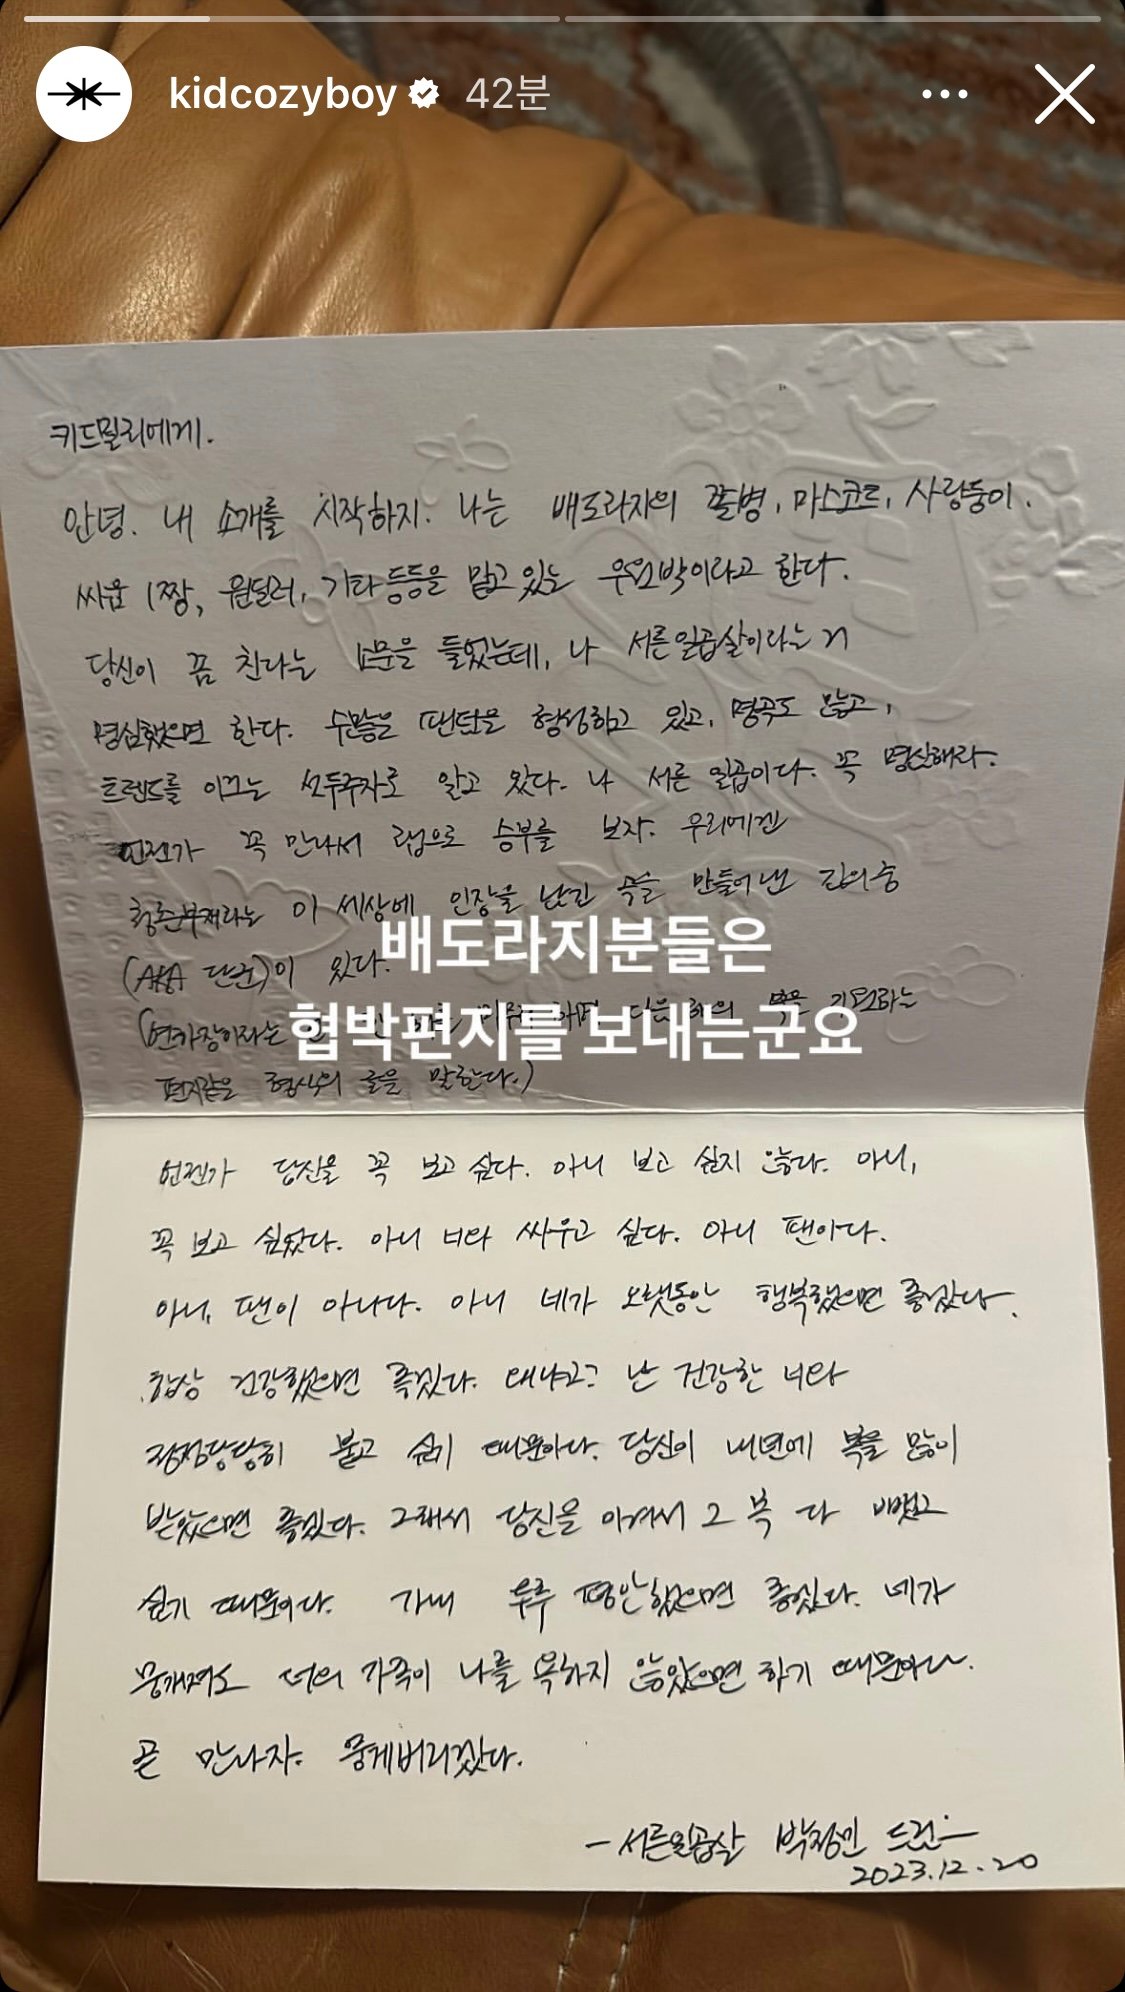 kidcozyboy 42분
키드밀리에게.
안녕. 내 소개를 시작하지. 나는 배도라지의 쫄병, 마스코트, 사랑둥이.
싸움 1짱, 원딜러, 기타등등을 맡고 있는 우원박이라고 한다.
당신이 꿈 친다는 소문을 들었는데, 나 서른일곱살이라는 거
명심했으면 한다. 수많은 팬단을 형성하고 있고, 명곡도 많고,
트렌드를 이끄는 선두주자로 알고 있다. 나 서른 일곱이다. 꼭 명심해라.
언젠가 꼭 만나서 랩으로 승부를 보자. 우리에겐
청춘부재라는 이 세상에 인장을 남긴 곡을 만들어 낸 김의중
(AKA 단군)이 있다.
배도라지분들은
(연하장이라는 다음 해의 복을 기원하는
협박편지를 보내는군요
편지같은 형식의 글을 말한다.)
언젠가 당신을 꼭 보고 싶다. 아니 보고 싶지 않다. 아니,
꼭 보고 싶었다. 아니 너와 싸우고 싶다. 아니 팬이다.
아니, 팬이 아니다. 아니 네가 오랫동안 행복했으면 좋겠다.
항상 건강했으면 좋겠다. 왜냐고? 난 건강한 너와
정정당당히 붙고 싶기 때문이다. 당신이 내년에 복을 많이
받았으면 좋겠다. 그래서 당신을 이겨서 그 복 다 뺏고
싶기 때문이다. 가내 두루 평안했으면 좋겠다. 네가
뭉개져도 너의 가족이 나를 욕하지 않았으면 하기 때문이다.
곧 만나자. 뭉게버리겠다.
- 서른일곱살 박정민 드림 -
2023.12.20